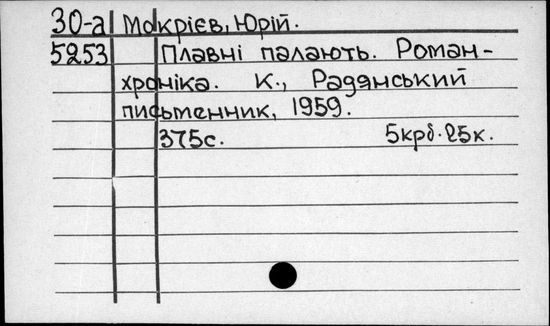 30-а Мокрієв, Юрій.
5253 Плавні палають. Роман-
хроніка. К., Радянський
письменник, 1959.
375с. 5крб. 25к.